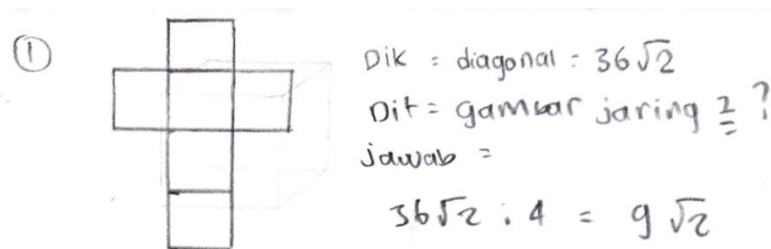 ①
Dik = diagonal = 36√2
Dit = gambar jaring2 ?
jawab =
36√2 : 4 = 9√2